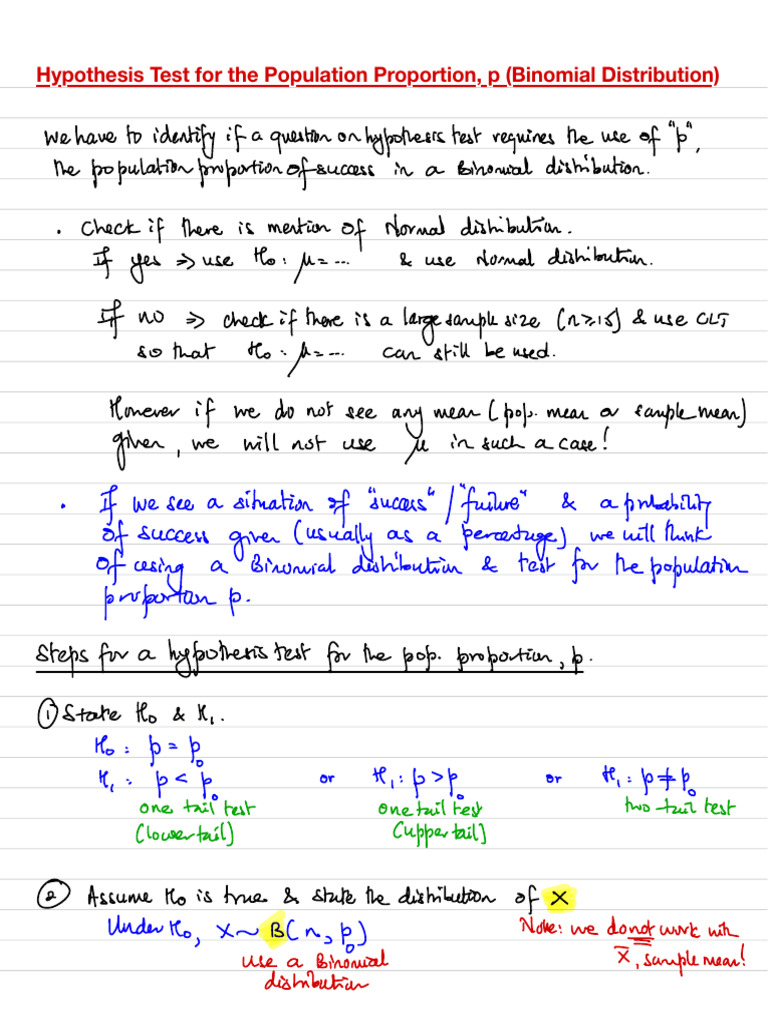 Hypothesis Test for the Population Proportion, p (Binomial Distribution)
We have to identify if a question on hypothesis test requires the use of "p",
the population proportion of success in a Binomial distribution.
• Check if there is mention of Normal distribution.
If yes ⇒ use H₀: μ = ... & use Normal distribution.
If no ⇒ check if there is a large sample size (n≥15) & use CLT
so that H₀: μ = ... can still be used.
However if we do not see any mean (pop. mean or sample mean)
given, we will not use μ in such a case!
• If we see a situation of "success"/"failure" & a probability
of success given (usually as a percentage) we will think
of using a Binomial distribution & test for the population
proportion p.
Steps for a hypothesis test for the pop. proportion, p.
① State H₀ & H₁.
H₀: p = p₀
H₁: p < p₀ or H₁: p > p₀ or H₁: p ≠ p₀
one tail test one tail test two-tail test
(lower tail) (upper tail)
② Assume H₀ is true & state the distribution of X
Under H₀, X ~ B(n, p₀) Note: we do not work with
use a Binomial X̄, sample mean!
distribution